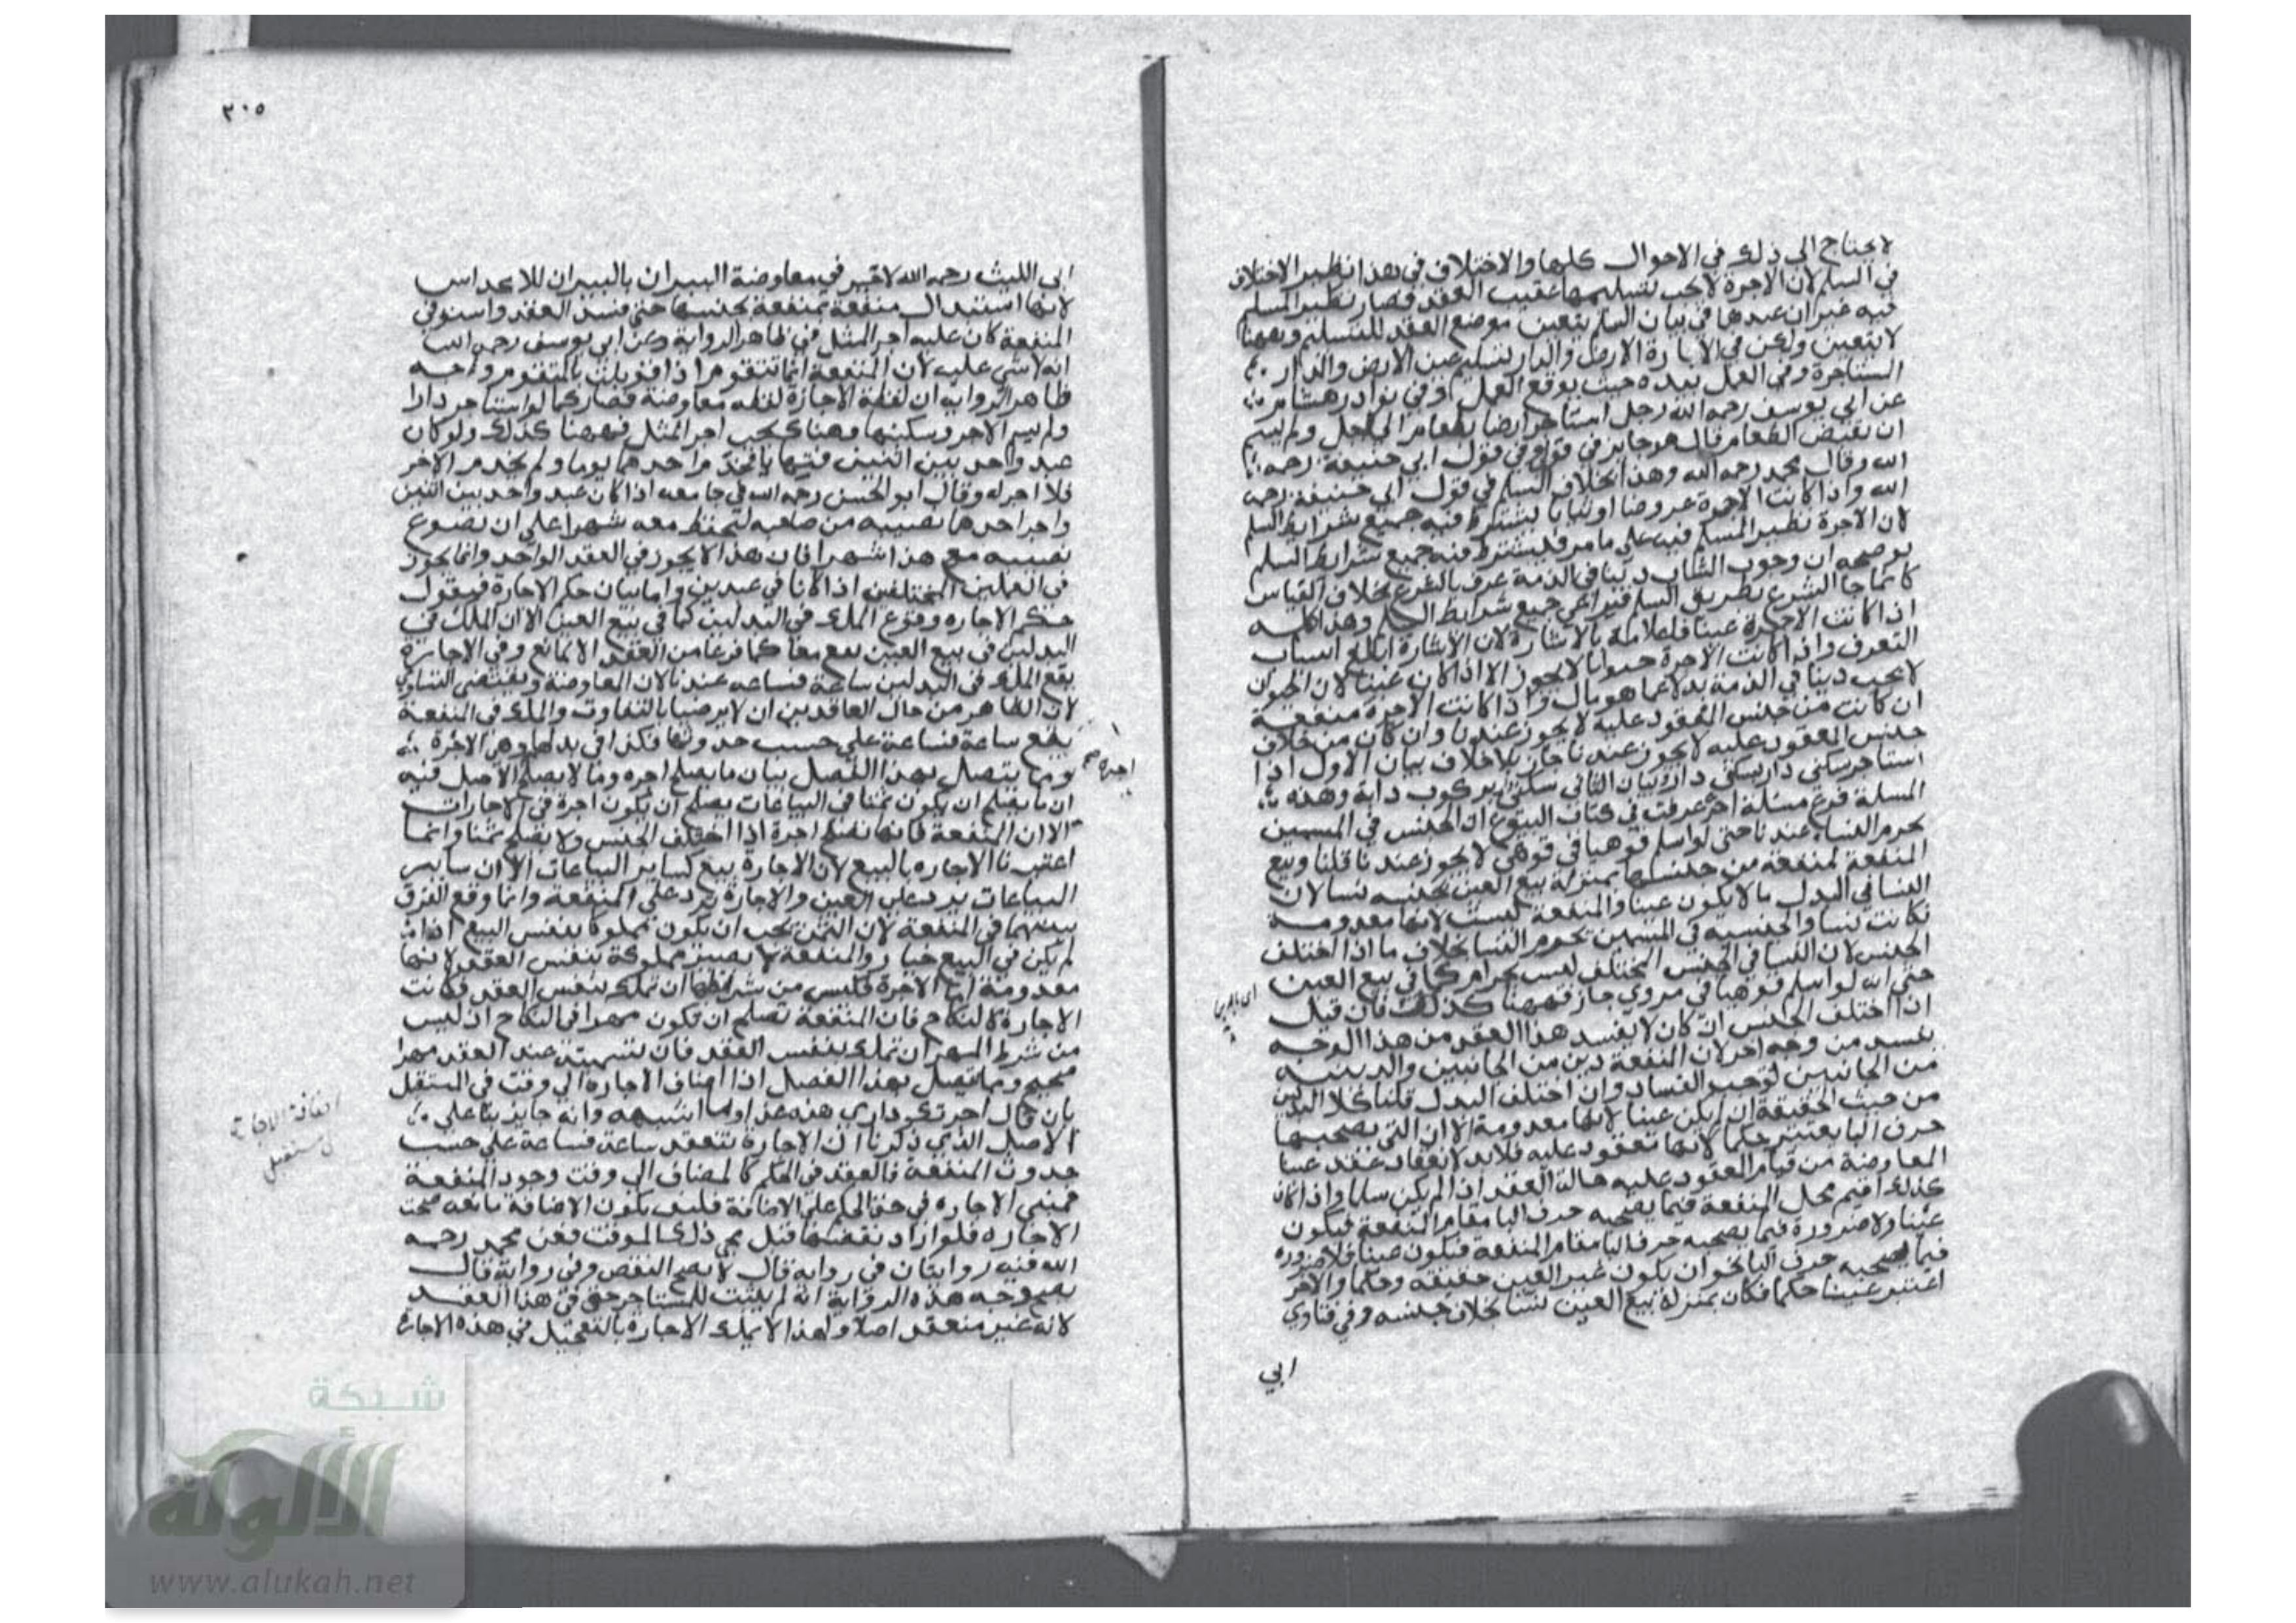 لا يحتاج الى ذلك في الاحوال كلها والاختلاف في هذا نظير الاختلاف
في السلم لان الاجرة لا يجب تسليمها عقيب العقد فصار نظير المسلم
فيه غير ان عندها في بيان السلم يتعين موضع العقد للتسليم وههنا
لا يتعين ولكن في اجارة الارض والدار تسليم عين الارض والدار
المستاجرة وفي العمل بعده حيث يوقع العمل وفي نوادر هشام
عن ابي يوسف رحمه الله رجل استاجر ارضا بطعام الى اجل ولم يسم
ان يقبض الطعام قال هو جايز في قوله وفي قول ابي حنيفة رحمه
الله وقال محمد رحمه الله وهذا بخلاف السلم في قول ابي حنيفة رحمه
الله واذا كانت الاجرة عروضا او ثيابا يشترط فيه جميع شرايط السلم
لان الاجرة نظير المسلم فيه على ما مر فيشترط فيه جميع شرايط السلم
يوضحه ان وجوب الثياب دينا في الذمة عرف بالشرع بخلاف القياس
كما جا الشرع بطريق السلم فيراعى جميع شرايط السلم وهذا كله
اذا كانت الاجرة عينا فاعلامه بالاشارة لان الاشارة ابلغ اسباب
التعرف واذا كانت الاجرة حيوانا لا يجوز الا اذا كان عينا لان الحيوان
لا يجب دينا في الذمة بدلا عما هو مال واذا كانت الاجرة منفعة
ان كانت من جنس المعقود عليه لا يجوز عندنا وان كان من خلاف
جنس المعقود عليه جاز بلا خلاف بيان الاول اذا
استاجر سكنى دار بسكنى دار وبيان الثاني سكنى بركوب دابة وهذه
المسلة فرع مسئلة اخرى عرفت في كتاب البيوع ان الجنس
يحرم النسا عندنا حتى لو اسلم قوهيا في قوهي لا يجوز عندنا قلنا وبيع
المنفعة بمنفعة من جنسها بمنزلة بيع العين بجنسه نسا لان
النسا في البدل ما لا يكون عينا والمنفعة ليست لانها معدومة
فكانت نسا والجنسيه في المسين يحرم النسا بخلاف ما اذا اختلف
الجنس لان النسا في الجنس المختلف ليس بحرام كما في بيع العين
حتى انه لو اسلم قوهيا في مروي جاز فههنا كذلك فان قيل
اذا اختلف الجنس ان كان لا يفسد هذا العقد من هذا الوجه
يفسد من وجه اخر لان المنفعة دين من الجانبين والدينيه
من الجانبين توجب الفساد وان اختلف البدل قلنا كلا البدلين
من حيث الحقيقة ان لم يكن عينا لانها معدومة الا ان التي يصحبها
حرف البا يعتبر حكما لانها تعقود عليه فلابد لانعقاد عقد عينا
المعاوضة من قيام المعقود عليه حالة العقد اذا لم يكن سلما واذا كان
كذلك اقيم محل المنفعة فيما يصحبه حرف البا مقام المنفعة فيكون
عينا ولا ضرورة فيما يصحبه حرف البا مقام المنفعة فيكون عينا فلا ضرورة
فيما يصحبه حرف البا نحو ان يكون غير العين حقيقة وحكما والاخر
اعتبر عينا حكما فكان بمنزلة بيع العين نسا بخلاف جنسه وفي فتاوي
ابي
٣٠٥
ابي الليث رحمه الله لا خير في معاوضة الثيران بالثيران للاكداس
لانها استبدال منفعة بمنفعة بجنسها حتى فسد العقد واستوفى
المنفعة كان عليه اجر المثل في ظاهر الرواية وعن ابي يوسف رحمه الله
انه لا شي عليه لان المنفعة انما تتقوم اذا قوبلت بالمتقوم وجه
ظاهر الرواية ان لفظة الاجارة لفظه معاوضة فصار كما لو استاجر دارا
ولم يسم الاجر وسكنها وهناك يجب اجر المثل فههنا كذلك ولو كان
عبد واحد بين اثنين فتهايا فخدم احدهما يوما ولم يخدم الاخر
فلا اجر له وقال ابو الحسن رحمه الله في جامعه اذا كان عبد واحد بين اثنين
واجر احدهما نصيبه من صاحبه ليخيط معه شهرا على ان يصوغ
نصيبه مع هذا شهرا فان هذا لا يجوز في العقد الواحد وانما يجوز
في العملين المختلفين اذا كانا في عبدين واما بيان حكم الاجارة فيقول
حكم الاجاره وقوع الملك في البدلين كما في بيع العين الا ان الملك في
البدلين في بيع العين يقع معا كما فرغا من العقد الا لمانع وفي الاجارة
يقع الملك في البدلين ساعة فساعه عندنا لان المعاوضة يقتضى التساوي
لان الظاهر من حال العاقدين ان لا يرضيا بالتفاوت والملك في المنفعة
يقع ساعة فساعة على حسب حدوثها فكذا في بدلها وهو الاجرة
ومما يتصل بهذا الفصل بيان ما يصلح اجره وما لا يصلح الاصل فيه
ان ما يصلح ان يكون ثمنا في البياعات يصلح ان يكون اجرة في الاجارات
الا ان المنفعة فانها تصلح اجرة اذا اختلف الجنس ولا يصلح ثمنا وانما
اعتبرنا الاجاره بالبيع لان الاجارة بيع كساير البياعات الا ان ساير
البياعات يرد على العين والاجارة يرد على المنفعة وانما وقع الفرق
بينهما في المنفعة لان الثمن يجب ان يكون مملوكا بنفس البيع اذا
لم يكن في البيع خيار والمنفعة لا يصير مملوكة بنفس العقد لانها
معدومة اما الاجرة فليس من شرطها ان تملك بنفس العقد فكانت
الاجارة كالنكاح فان المنفعة تصلح ان تكون مهرا في النكاح اذ ليس
من شرط المهر ان تملك بنفس العقد فان تسميته عند العقد مهرا
صحيح ومما يتصل بهذا الفصل اذا اضاف الاجارة الى وقت في المستقبل
بان قال اجرتك داري هذه غدا وما اشبهه وانه جايز بنا على
الاصل الذي ذكرنا ان الاجارة تنعقد ساعة فساعة على حسب
حدوث المنفعة فالعقد في الحكم كالمضاف الى وقت وجود المنفعة
فمبنى الاجاره في حق الحكم على الاضافة فكيف يكون الاضافة مانعه صحت
الاجاره فلو اراد نقضها قبل مجي ذلك الموقت فعن محمد رحمه
الله فيه روايتان في روايه قال لا يصح النقض وفي رواية قال
يصح وجه هذه الرواية انه لم يثبت للمستاجر حق في هذا العقد
لانه غير منعقد اصلا ولهذا لا يملك الاجاره بالتعجيل في هذه الاجارة
اجرة صح
اضافة الاجارة
في مستقبل
شبكة
الألوكة
www.alukah.net